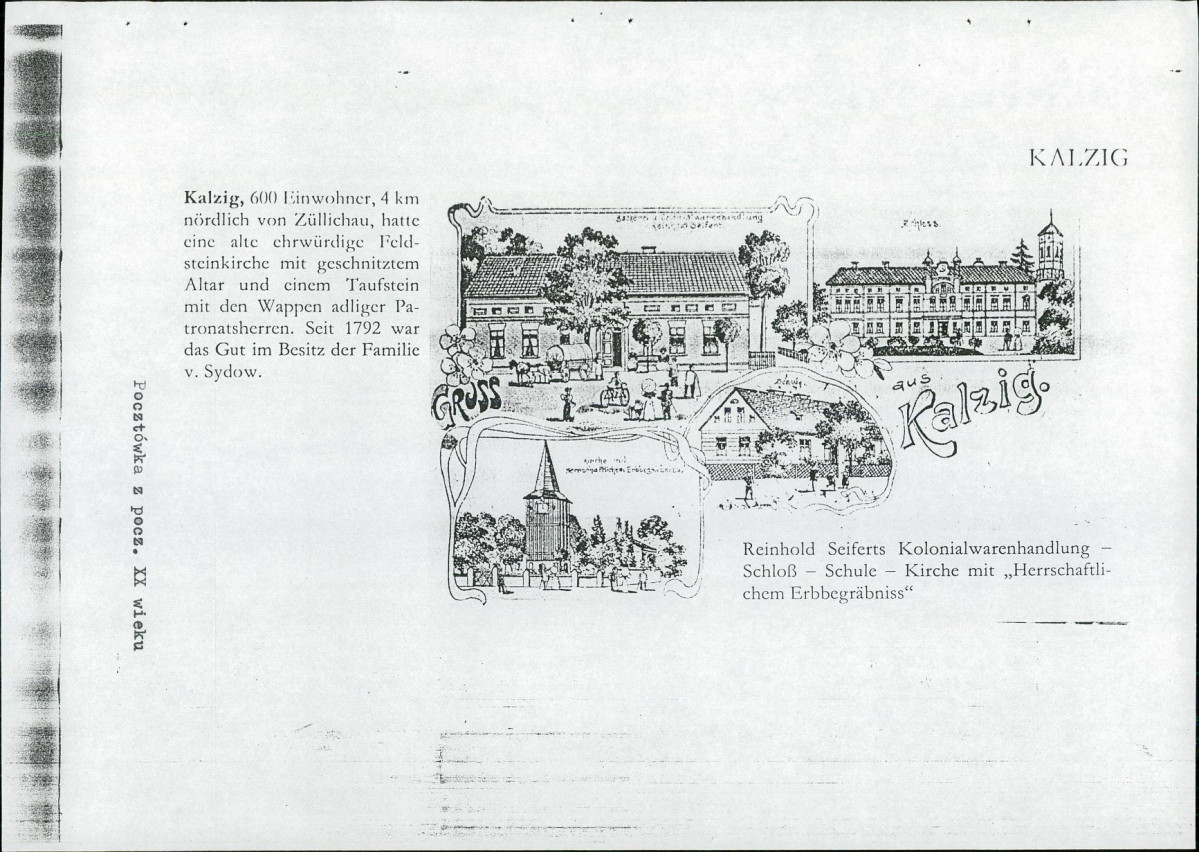 KALZIG
Kalzig, 600 Einwohner, 4 km
nördlich von Züllichau, hatte
eine alte ehrwürdige Feld-
steinkirche mit geschnitztem
Altar und einem Taufstein
mit den Wappen adliger Pa-
tronatsherren. Seit 1792 war
das Gut im Besitz der Familie
v. Sydow.
Bäckerei u. Colonialwarenhandlung
Reinhold Seifert
Schloss.
GRUSS
aus
Kalzig.
Schule.
Kirche mit
Herrschaftlichem Erbbegräbniss.
Reinhold Seiferts Kolonialwarenhandlung –
Schloß – Schule – Kirche mit „Herrschaftli-
chem Erbbegräbniss“
Pocztówka z pocz. XX wieku